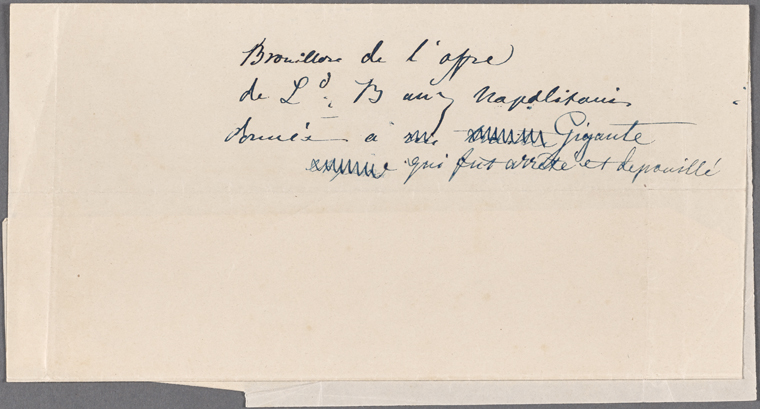 Brouillon de l'offre
de Ld. B aux Napolitains
donnée à un Gigante
qui fut arrêté et depouillé